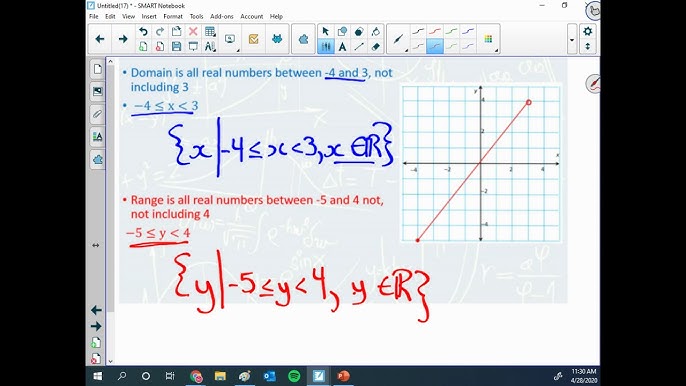 Untitled(17) * - SMART Notebook
File Edit View Insert Format Tools Add-ons Help
• Domain is all real numbers between -4 and 3, not
including 3
• −4 ≤ x < 3
{x|-4≤x<3, x∈ℝ}
• Range is all real numbers between -5 and 4 not,
not including 4
−5 ≤ y < 4
{y|-5≤y<4, y∈ℝ}
y
4
2
x
-4
-2
2
4
-2
-4
11:30 AM
4/28/2020